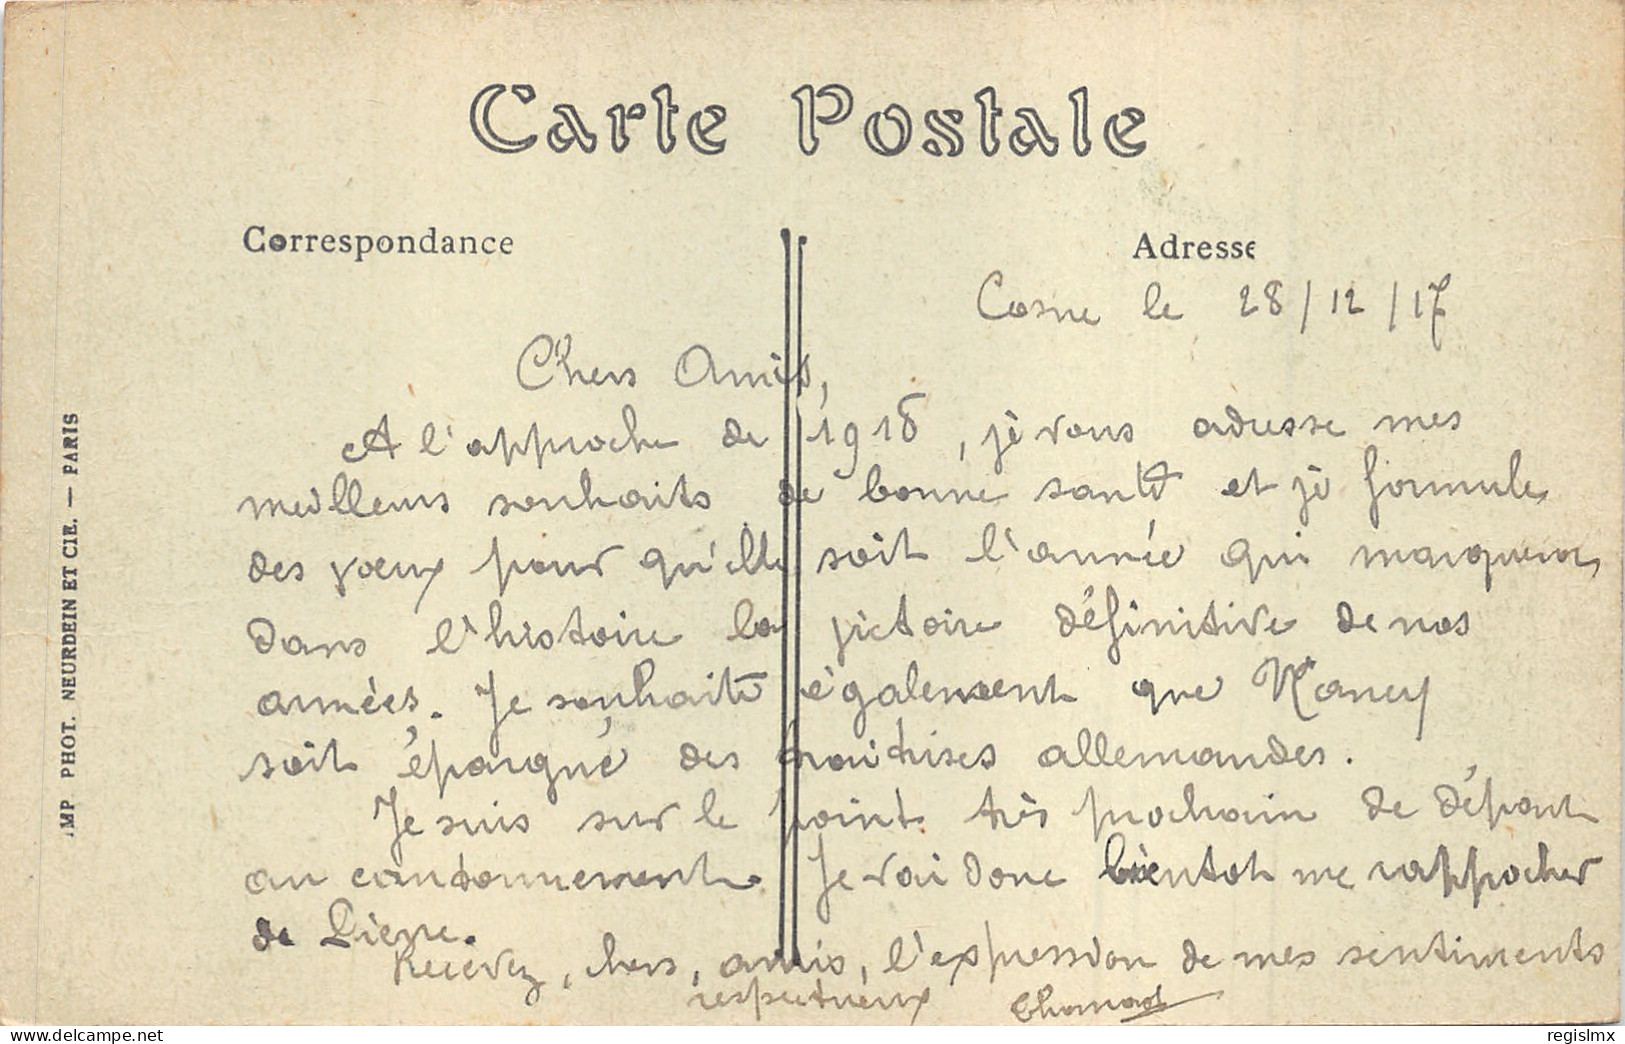 Carte Postale
Correspondance
Adresse
Cosne le 28/12/17
Chers Amis,
A l'approche de 1918, je vous adresse mes
meilleurs souhaits de bonne santé et je formule
des vœux pour qu'elle soit l'année qui marquera
dans l'histoire la victoire définitive de nos
armées. Je souhaite également que Nancy
soit épargné des traitrises allemandes.
Je suis sur le point très prochain de départ
au cantonnement. Je vai donc bientot me rapprocher
de Pierre.
Recevez, chers, amis, l'expression de mes sentiments
respectueux
IMP PHOT. NEURDEIN ET CIE. — PARIS
www.delcampe.net
regislmx